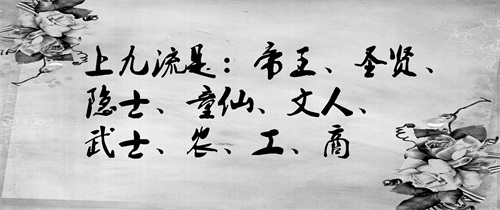 上九流是：帝王、圣贤、
隐士、童仙、文人、
武士、农、工、商